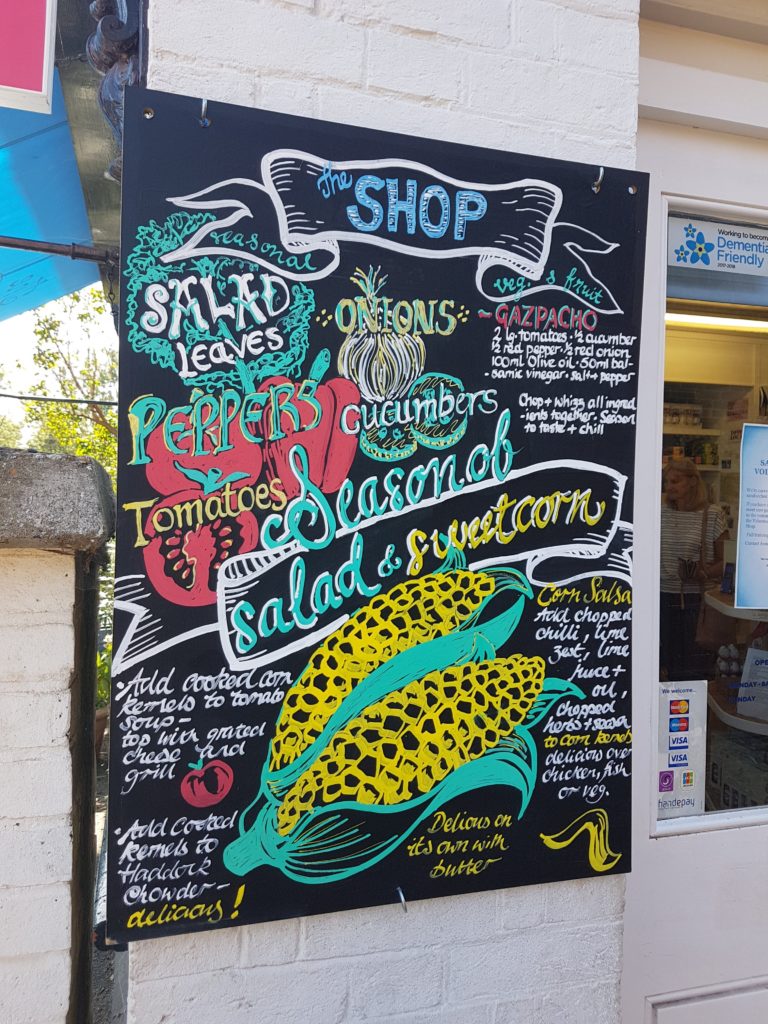 The SHOP
seasonal
veg & fruit
SALAD
LEAVES
ONIONS
~ GAZPACHO
2 lg. tomatoes · ½ cucumber
½ red pepper · ½ red onion
100ml Olive oil · 50ml bal-
samic vinegar · salt + pepper
Chop + whizz all ingred
- ients together · Season
to taste + chill
PEPPERS
cucumbers
Tomatoes
Season of
salad & sweetcorn
· Add cooked corn
kernels to tomato
soup -
top with grated
chese and
grill
· Add cooked
kernels to
Haddock
Chowder -
delicious!
Corn Salsa
Add chopped
chilli, lime
zest, lime
juice +
oil,
chopped
herbs +
to corn kernels
delicious over
chicken, fish
or veg.
Delious on
its own with
butter
Working to become
Dementia
Friendly
2017-2018
OPE
We welcome...
MasterCard
VISA
VISA
handepay